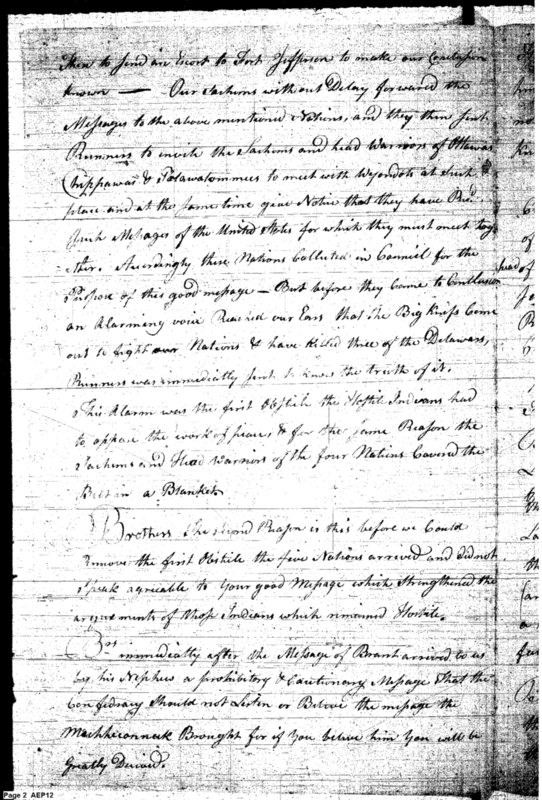 then to send an Escort to Fort Jefferson to make our Conclusion
known — Our Sachems without Delay forwared the
Messages to the above mentioned Nations, and they then sent
Runners to invite the Sachems and head Warriors of Ottawas
Chippawas & Potawatommees to meet with Wyondots at such
place and at the same time give Notice that they have Recd.
such Messages of the United States for which they must meet tog-
ether. Accordingly these Nations Collected in Council for the
Purpose of this good message — But before they come to Conclusion
an Alarming voice Reached our Ears that the Big Knifs Come
out to fight our Nations & have Killed three of the Delawars,
Runners was immediatly sent to know the truth of it.
This Alarm was the first Obsticle the Hostile Indians had
to oppose the work of peace, & for the same Reason the
Sachems and Head Warriors of the four Nations Covered the
Belt in a Blanket
Brothers The second Reason is this before we Could
Remove the first Obsticle the five Nations arrived and did not
Speak agreable to Your good Message which Strengthened the
arguments of those Indians which remained Hostile.
immediatly after the Message of Brant arrived to us
by his Nephew a prohibitory & Cautionary Message that the
Confedracy Should not Listen or Believe the message the
Muhheconnuk Brought for if You believe him You will be
greatly Deceived.
Page 2 AEP12